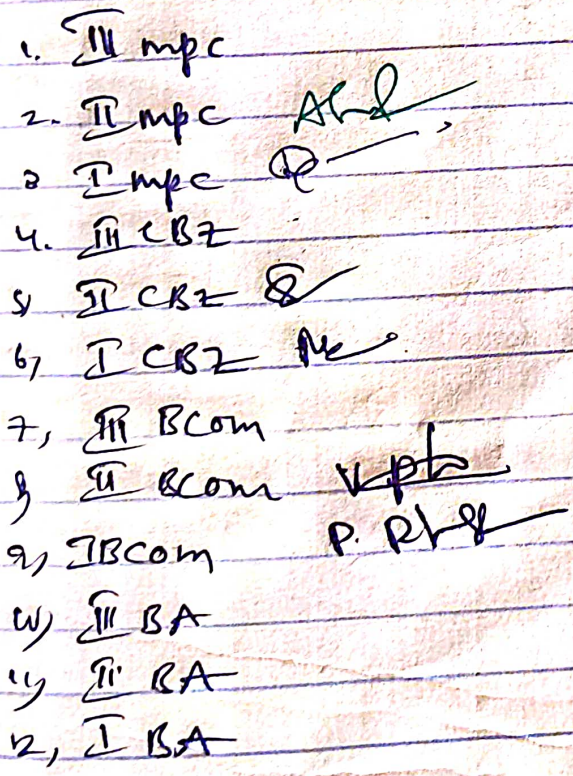 1. III mpc
2. II mpc
3 I mpc
4. III CBZ
5) II CBZ
6, I CBZ
7, III BCom
8) II BCom
9, I BCom
10) III BA
11) II BA
12, I BA